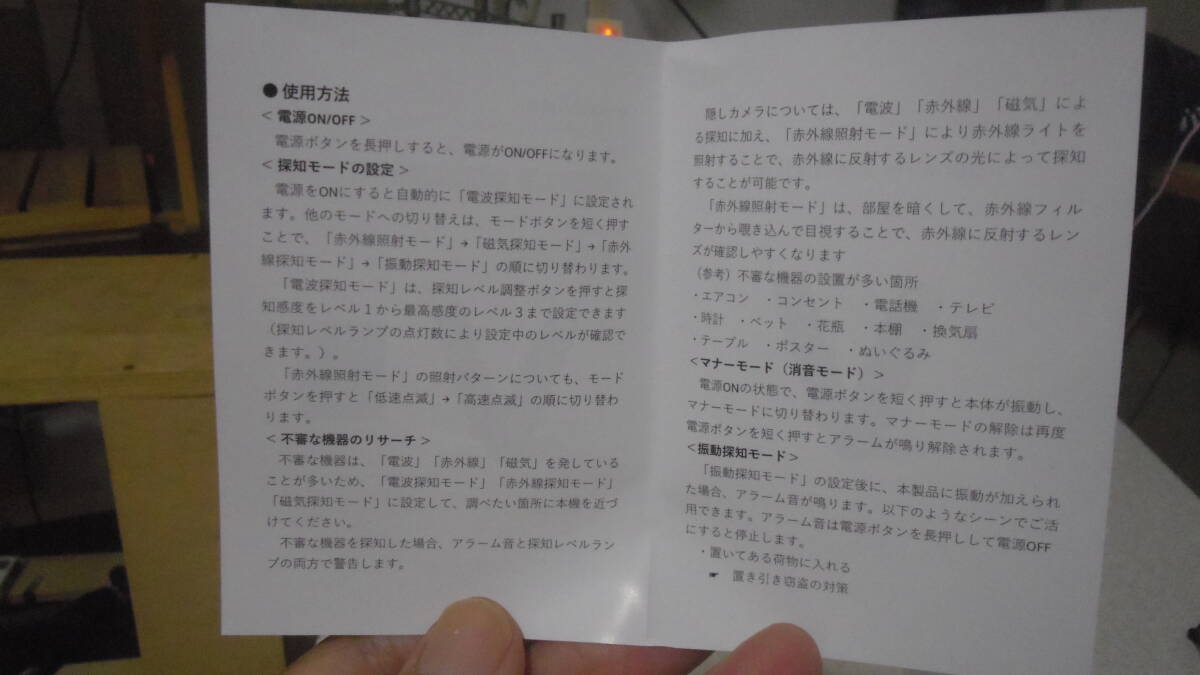 ● 使用方法
< 電源ON/OFF >
電源ボタンを長押しすると、電源がON/OFFになります。
< 探知モードの設定 >
電源をONにすると自動的に「電波探知モード」に設定され
ます。他のモードへの切り替えは、モードボタンを短く押す
ことで、「赤外線照射モード」→「磁気探知モード」→「赤外
線探知モード」→「振動探知モード」の順に切り替わります。
「電波探知モード」は、探知レベル調整ボタンを押すと探
知感度をレベル1から最高感度のレベル3まで設定できます
(探知レベルランプの点灯数により設定中のレベルが確認で
きます。)。
「赤外線照射モード」の照射パターンについても、モード
ボタンを押すと「低速点滅」→「高速点滅」の順に切り替わ
ります。
< 不審な機器のリサーチ >
不審な機器は、「電波」「赤外線」「磁気」を発している
ことが多いため、「電波探知モード」「赤外線探知モード」
「磁気探知モード」に設定して、調べたい箇所に本機を近づ
けてください。
不審な機器を探知した場合、アラーム音と探知レベルラン
プの両方で警告します。
隠しカメラについては、「電波」「赤外線」「磁気」によ
る探知に加え、「赤外線照射モード」により赤外線ライトを
照射することで、赤外線に反射するレンズの光によって探知
することが可能です。
「赤外線照射モード」は、部屋を暗くして、赤外線フィル
ターから覗き込んで目視することで、赤外線に反射するレン
ズが確認しやすくなります
(参考)不審な機器の設置が多い箇所
・エアコン ・コンセント ・電話機 ・テレビ
・時計 ・ベット ・花瓶 ・本棚 ・換気扇
・テーブル ・ポスター ・ぬいぐるみ
<マナーモード(消音モード)>
電源ONの状態で、電源ボタンを短く押すと本体が振動し、
マナーモードに切り替わります。マナーモードの解除は再度
電源ボタンを短く押すとアラームが鳴り解除されます。
<振動探知モード>
「振動探知モード」の設定後に、本製品に振動が加えられ
た場合、アラーム音が鳴ります。以下のようなシーンでご活
用できます。アラーム音は電源ボタンを長押しして電源OFF
にすると停止します。
・置いてある荷物に入れる
☛ 置き引き窃盗の対策